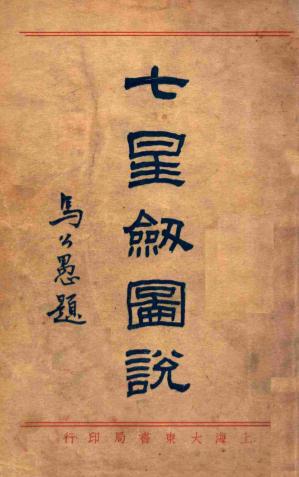 七星劒圖說
馬公愚題
上海大東書局印行